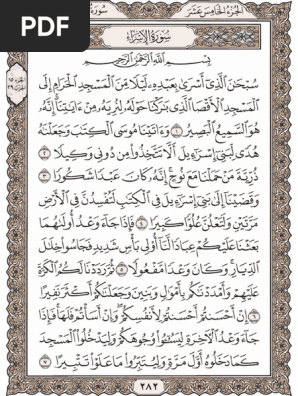 PDF
الجزء الخامس عشر
سورة الإسراء
بسم الله الرحمن الرحيم
سُبْحَٰنَ ٱلَّذِىٓ أَسْرَىٰ بِعَبْدِهِۦ لَيْلًا مِّنَ ٱلْمَسْجِدِ ٱلْحَرَامِ إِلَى
ٱلْمَسْجِدِ ٱلْأَقْصَا ٱلَّذِى بَٰرَكْنَا حَوْلَهُۥ لِنُرِيَهُۥ مِنْ ءَايَٰتِنَآ إِنَّهُۥ
هُوَ ٱلسَّمِيعُ ٱلْبَصِيرُ ١ وَءَاتَيْنَا مُوسَى ٱلْكِتَٰبَ وَجَعَلْنَٰهُ
هُدًى لِّبَنِىٓ إِسْرَٰٓءِيلَ أَلَّا تَتَّخِذُوا۟ مِن دُونِى وَكِيلًا ٢
ذُرِّيَّةَ مَنْ حَمَلْنَا مَعَ نُوحٍ إِنَّهُۥ كَانَ عَبْدًا شَكُورًا ٣
وَقَضَيْنَآ إِلَىٰ بَنِىٓ إِسْرَٰٓءِيلَ فِى ٱلْكِتَٰبِ لَتُفْسِدُنَّ فِى ٱلْأَرْضِ
مَرَّتَيْنِ وَلَتَعْلُنَّ عُلُوًّا كَبِيرًا ٤ فَإِذَا جَآءَ وَعْدُ أُولَىٰهُمَا
بَعَثْنَا عَلَيْكُمْ عِبَادًا لَّنَآ أُو۟لِى بَأْسٍ شَدِيدٍ فَجَاسُوا۟ خِلَٰلَ
ٱلدِّيَارِ وَكَانَ وَعْدًا مَّفْعُولًا ٥ ثُمَّ رَدَدْنَا لَكُمُ ٱلْكَرَّةَ
عَلَيْهِمْ وَأَمْدَدْنَٰكُم بِأَمْوَٰلٍ وَبَنِينَ وَجَعَلْنَٰكُمْ أَكْثَرَ نَفِيرًا
٦ إِنْ أَحْسَنتُمْ أَحْسَنتُمْ لِأَنفُسِكُمْ وَإِنْ أَسَأْتُمْ فَلَهَا فَإِذَا
جَآءَ وَعْدُ ٱلْءَاخِرَةِ لِيَسُۥٓـُٔوا۟ وُجُوهَكُمْ وَلِيَدْخُلُوا۟ ٱلْمَسْجِدَ
كَمَا دَخَلُوهُ أَوَّلَ مَرَّةٍ وَلِيُتَبِّرُوا۟ مَا عَلَوْا۟ تَتْبِيرًا ٧
٢٨٢